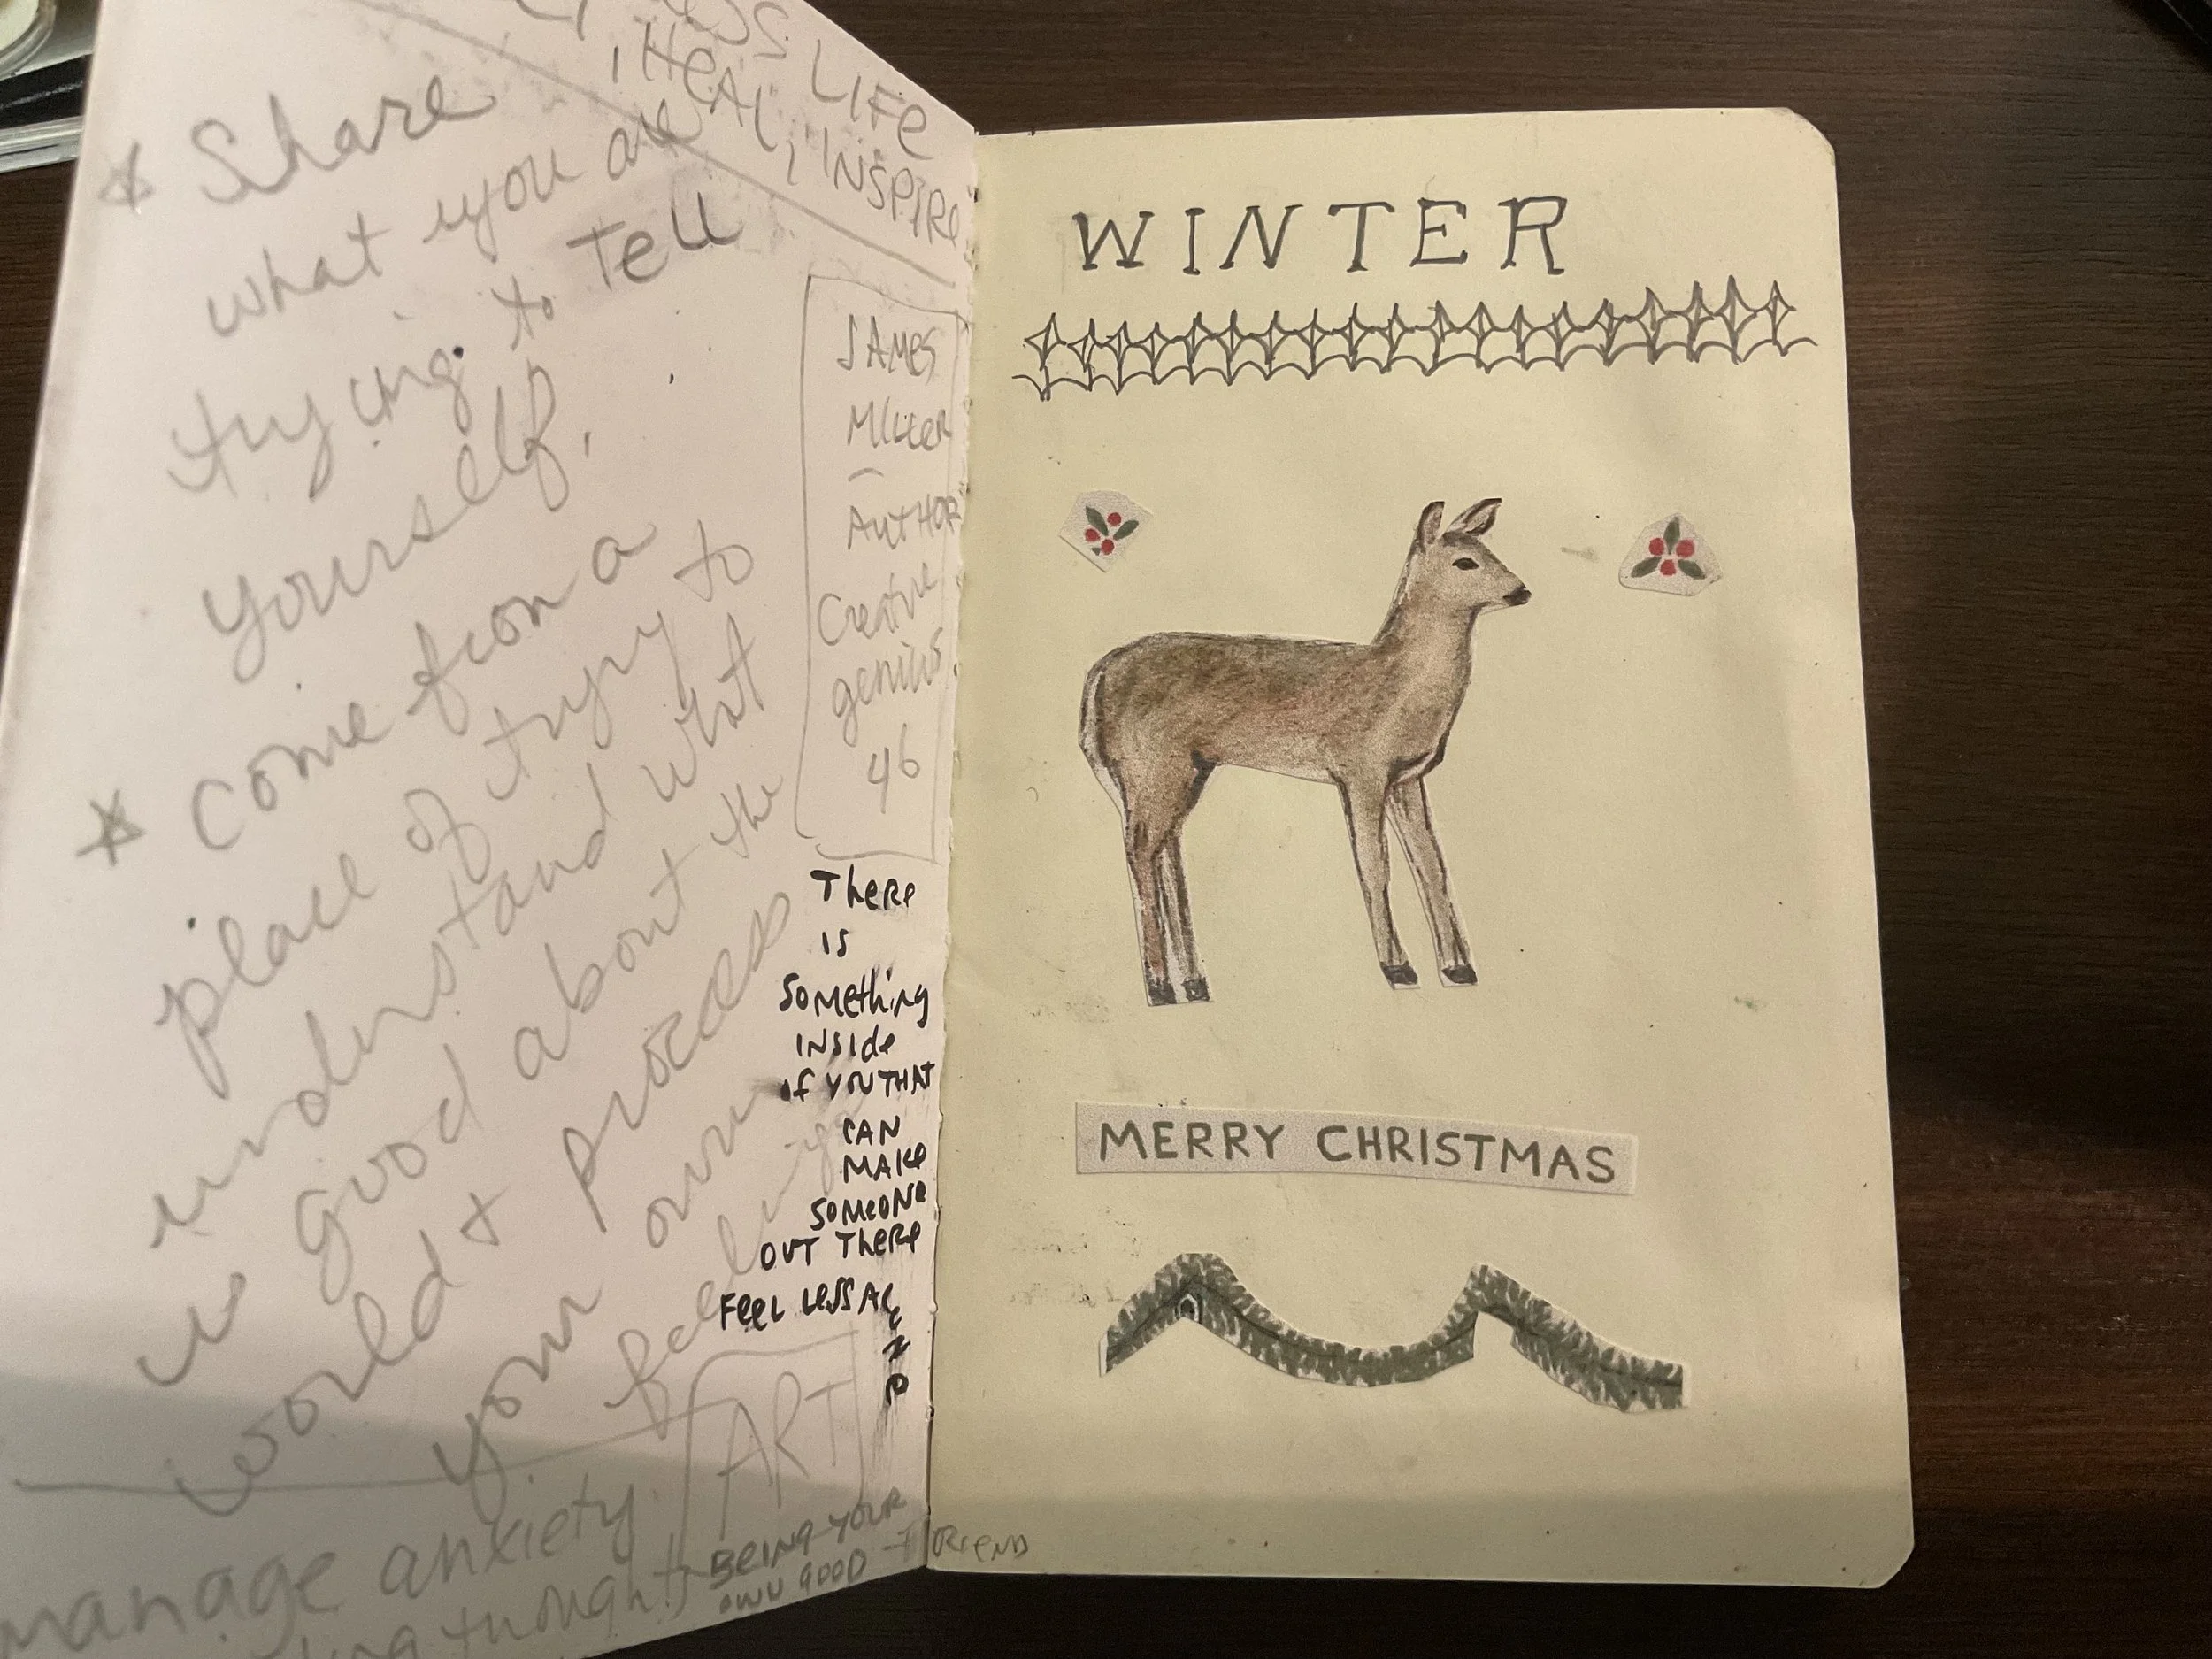 LIFE
, HEAL, INSPIRE
* Share
what you are
trying to Tell
yourself.
* Come from a
place of trying to
understand what
is good about the
world & process
your own
feelings
JAMES
MILLER
AUTHOR
Creative
genius
46
There
is
Something
INSide
of YOU THAT
CAN
MAKe
SOMeONe
OUT THeRe
FeeL LeSS ALONe
ART
manage anxiety
thoughts
BEING YOUR
OWN GOOD FRIEND
WINTER
MERRY CHRISTMAS